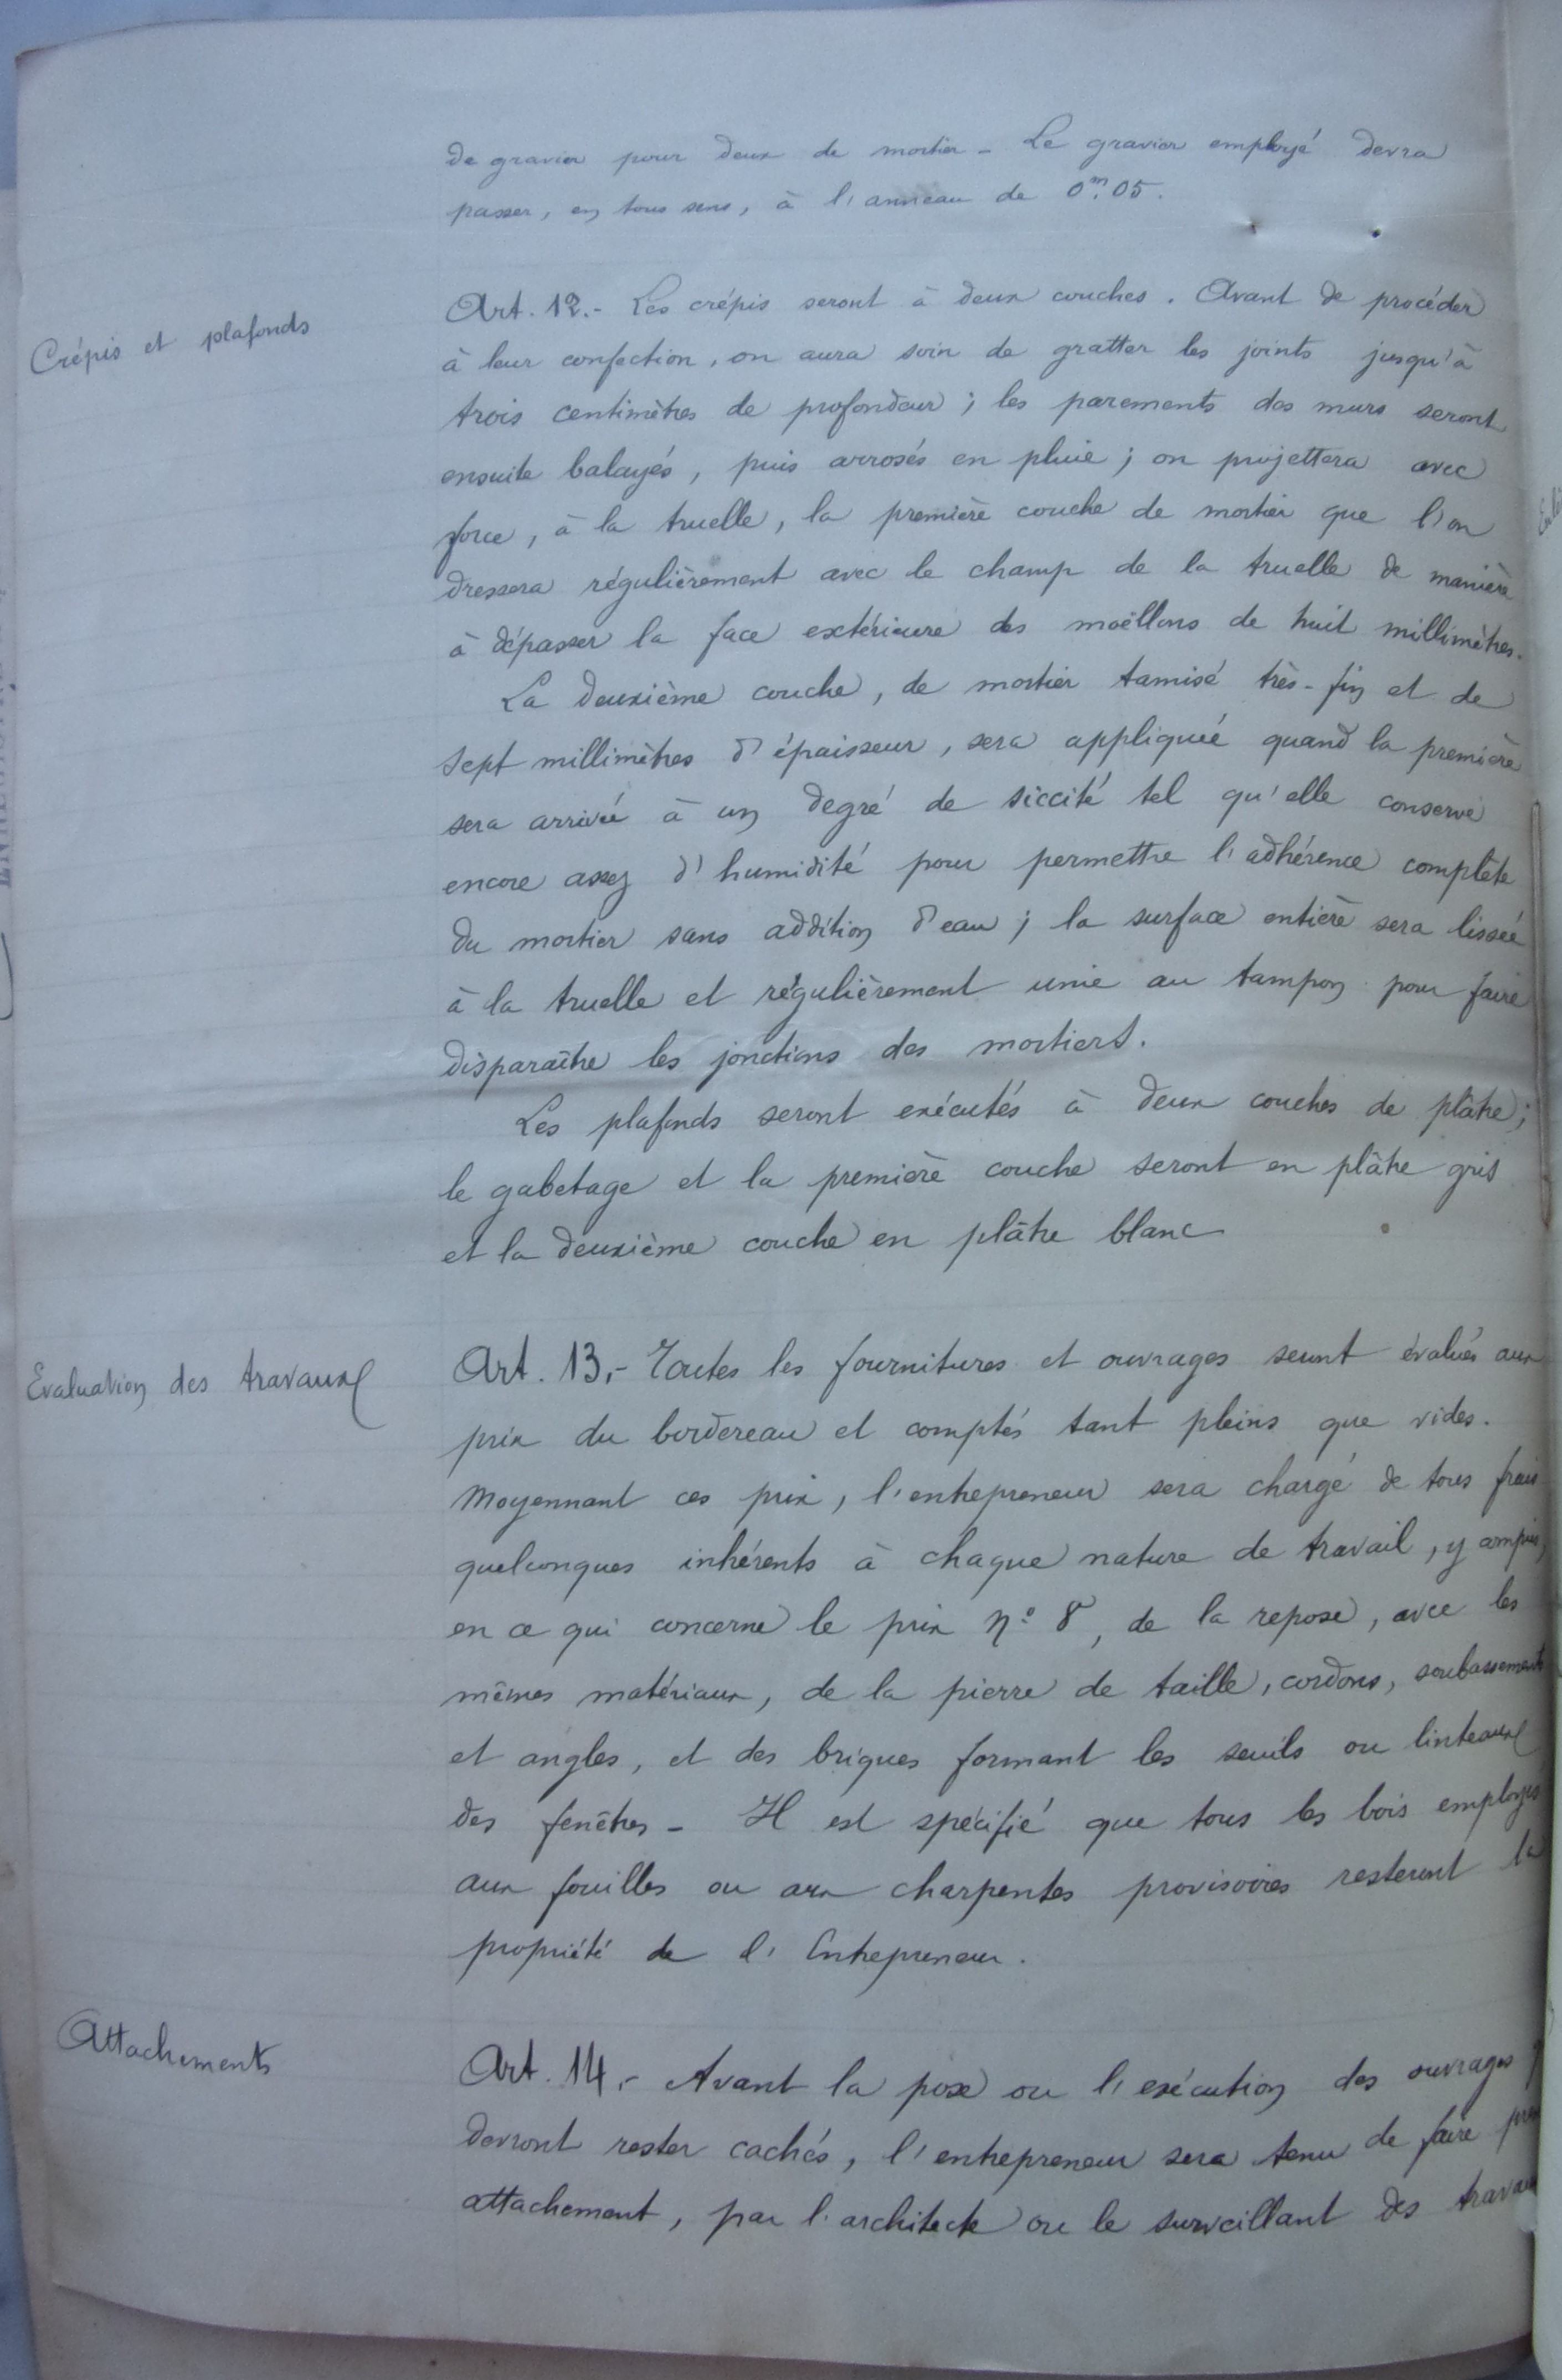 de gravier pour deux de mortier - Le gravier employé devra
passer, en tous sens, à l'anneau de 0m.05.
Crépis et plafonds
Art. 12.- Les crépis seront à deux couches. Avant de procéder
à leur confection, on aura soin de gratter les joints jusqu'à
trois centimètres de profondeur ; les parements des murs seront
ensuite balayés, puis arrosés en pluie ; on projettera avec
force, à la truelle, la première couche de mortier que l'on
dressera régulièrement avec le champ de la truelle de manière
à dépasser la face extérieure des moëllons de huit millimètres.
La deuxième couche, de mortier tamisé très-fin et de
sept millimètres d'épaisseur, sera appliquée quand la première
sera arrivée à un degré de siccité tel qu'elle conserve
encore assez d'humidité pour permettre l'adhérence complète
du mortier sans addition d'eau ; la surface entière sera lissée
à la truelle et régulièrement unie au tampon pour faire
disparaître les jonctions des mortiers.
Les plafonds seront exécutés à deux couches de plâtre ;
le gabetage et la première couche seront en plâtre gris
et la deuxième couche en plâtre blanc
Evaluation des travaux
Art. 13.- Toutes les fournitures et ouvrages seront évalués aux
prix du bordereau et comptés tant pleins que vides.
Moyennant ces prix, l'entrepreneur sera chargé de tous frais
quelconques inhérents à chaque nature de travail, y compris,
en ce qui concerne le prix N° 8, de la repose, avec les
mêmes matériaux, de la pierre de taille, cordons, soubassements
et angles, et des briques formant les seuils ou linteaux
des fenêtres - Il est spécifié que tous les bois employés
aux fouilles ou aux charpentes provisoires resteront la
propriété de l'Entrepreneur.
Attachements
Art. 14.- Avant la pose ou l'exécution des ouvrages
devront rester cachés, l'entrepreneur sera tenu de faire
attachement, par l'architecte ou le surveillant des travaux